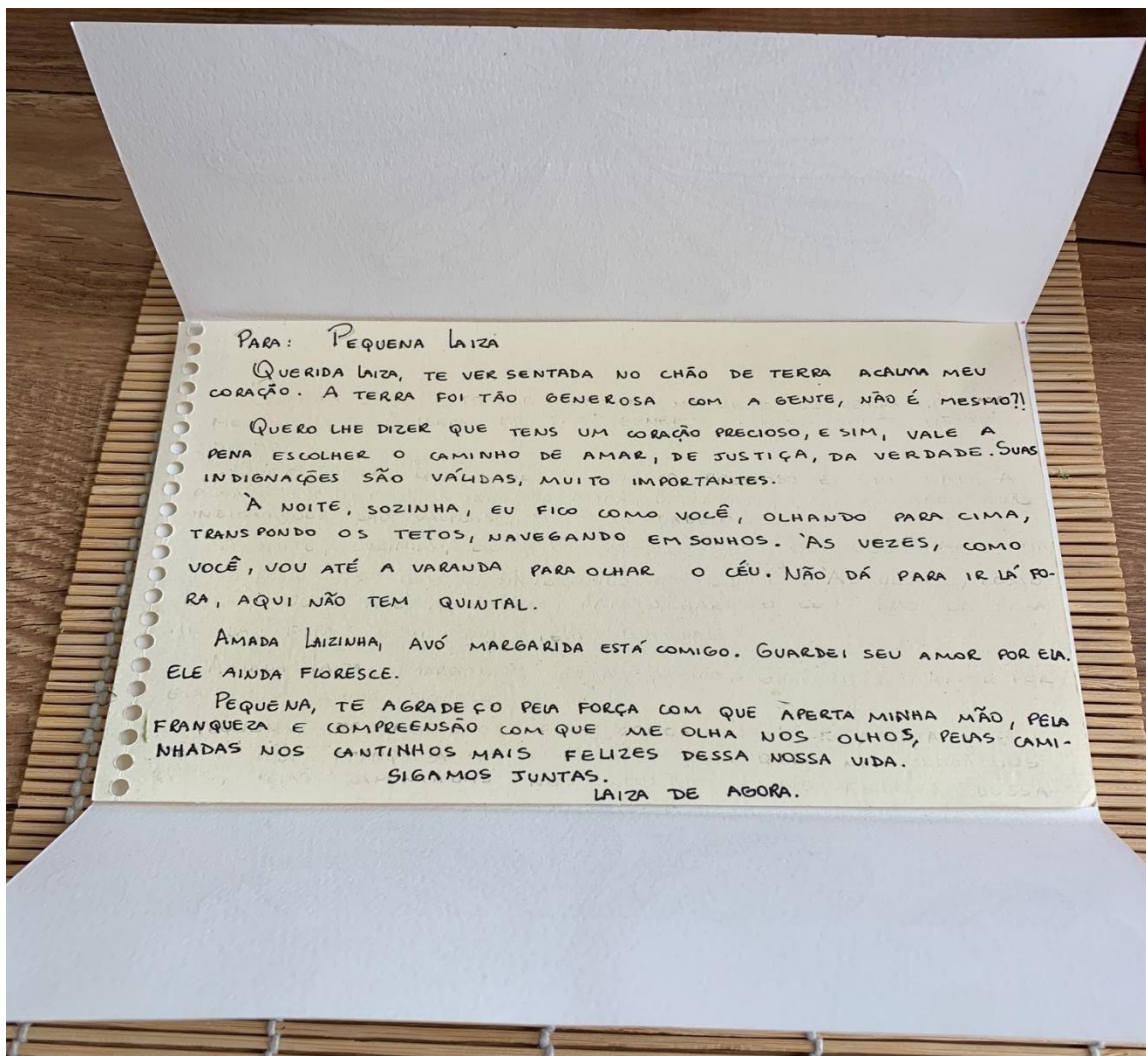 PARA: PEQUENA LAIZA
QUERIDA LAIZA, TE VER SENTADA NO CHÃO DE TERRA ACALMA MEU
CORAÇÃO. A TERRA FOI TÃO GENEROSA COM A GENTE, NÃO É MESMO?!
QUERO LHE DIZER QUE TENS UM CORAÇÃO PRECIOSO, E SIM, VALE A
PENA ESCOLHER O CAMINHO DE AMAR, DE JUSTIÇA, DA VERDADE. SUAS
INDIGNAÇÕES SÃO VÁLIDAS, MUITO IMPORTANTES.
À NOITE, SOZINHA, EU FICO COMO VOCÊ, OLHANDO PARA CIMA,
TRANSPONDO OS TETOS, NAVEGANDO EM SONHOS. ÀS VEZES, COMO
VOCÊ, VOU ATÉ A VARANDA PARA OLHAR O CÉU. NÃO DÁ PARA IR LÁ FO-
RA, AQUI NÃO TEM QUINTAL.
AMADA LAIZINHA, AVÓ MARGARIDA ESTÁ COMIGO. GUARDEI SEU AMOR POR ELA.
ELE AINDA FLORESCE.
PEQUENA, TE AGRADEÇO PELA FORÇA COM QUE APERTA MINHA MÃO, PELA
FRANQUEZA E COMPREENSÃO COM QUE ME OLHA NOS OLHOS, PELAS CAMI-
NHADAS NOS CANTINHOS MAIS FELIZES DESSA NOSSA VIDA.
SIGAMOS JUNTAS.
LAIZA DE AGORA.